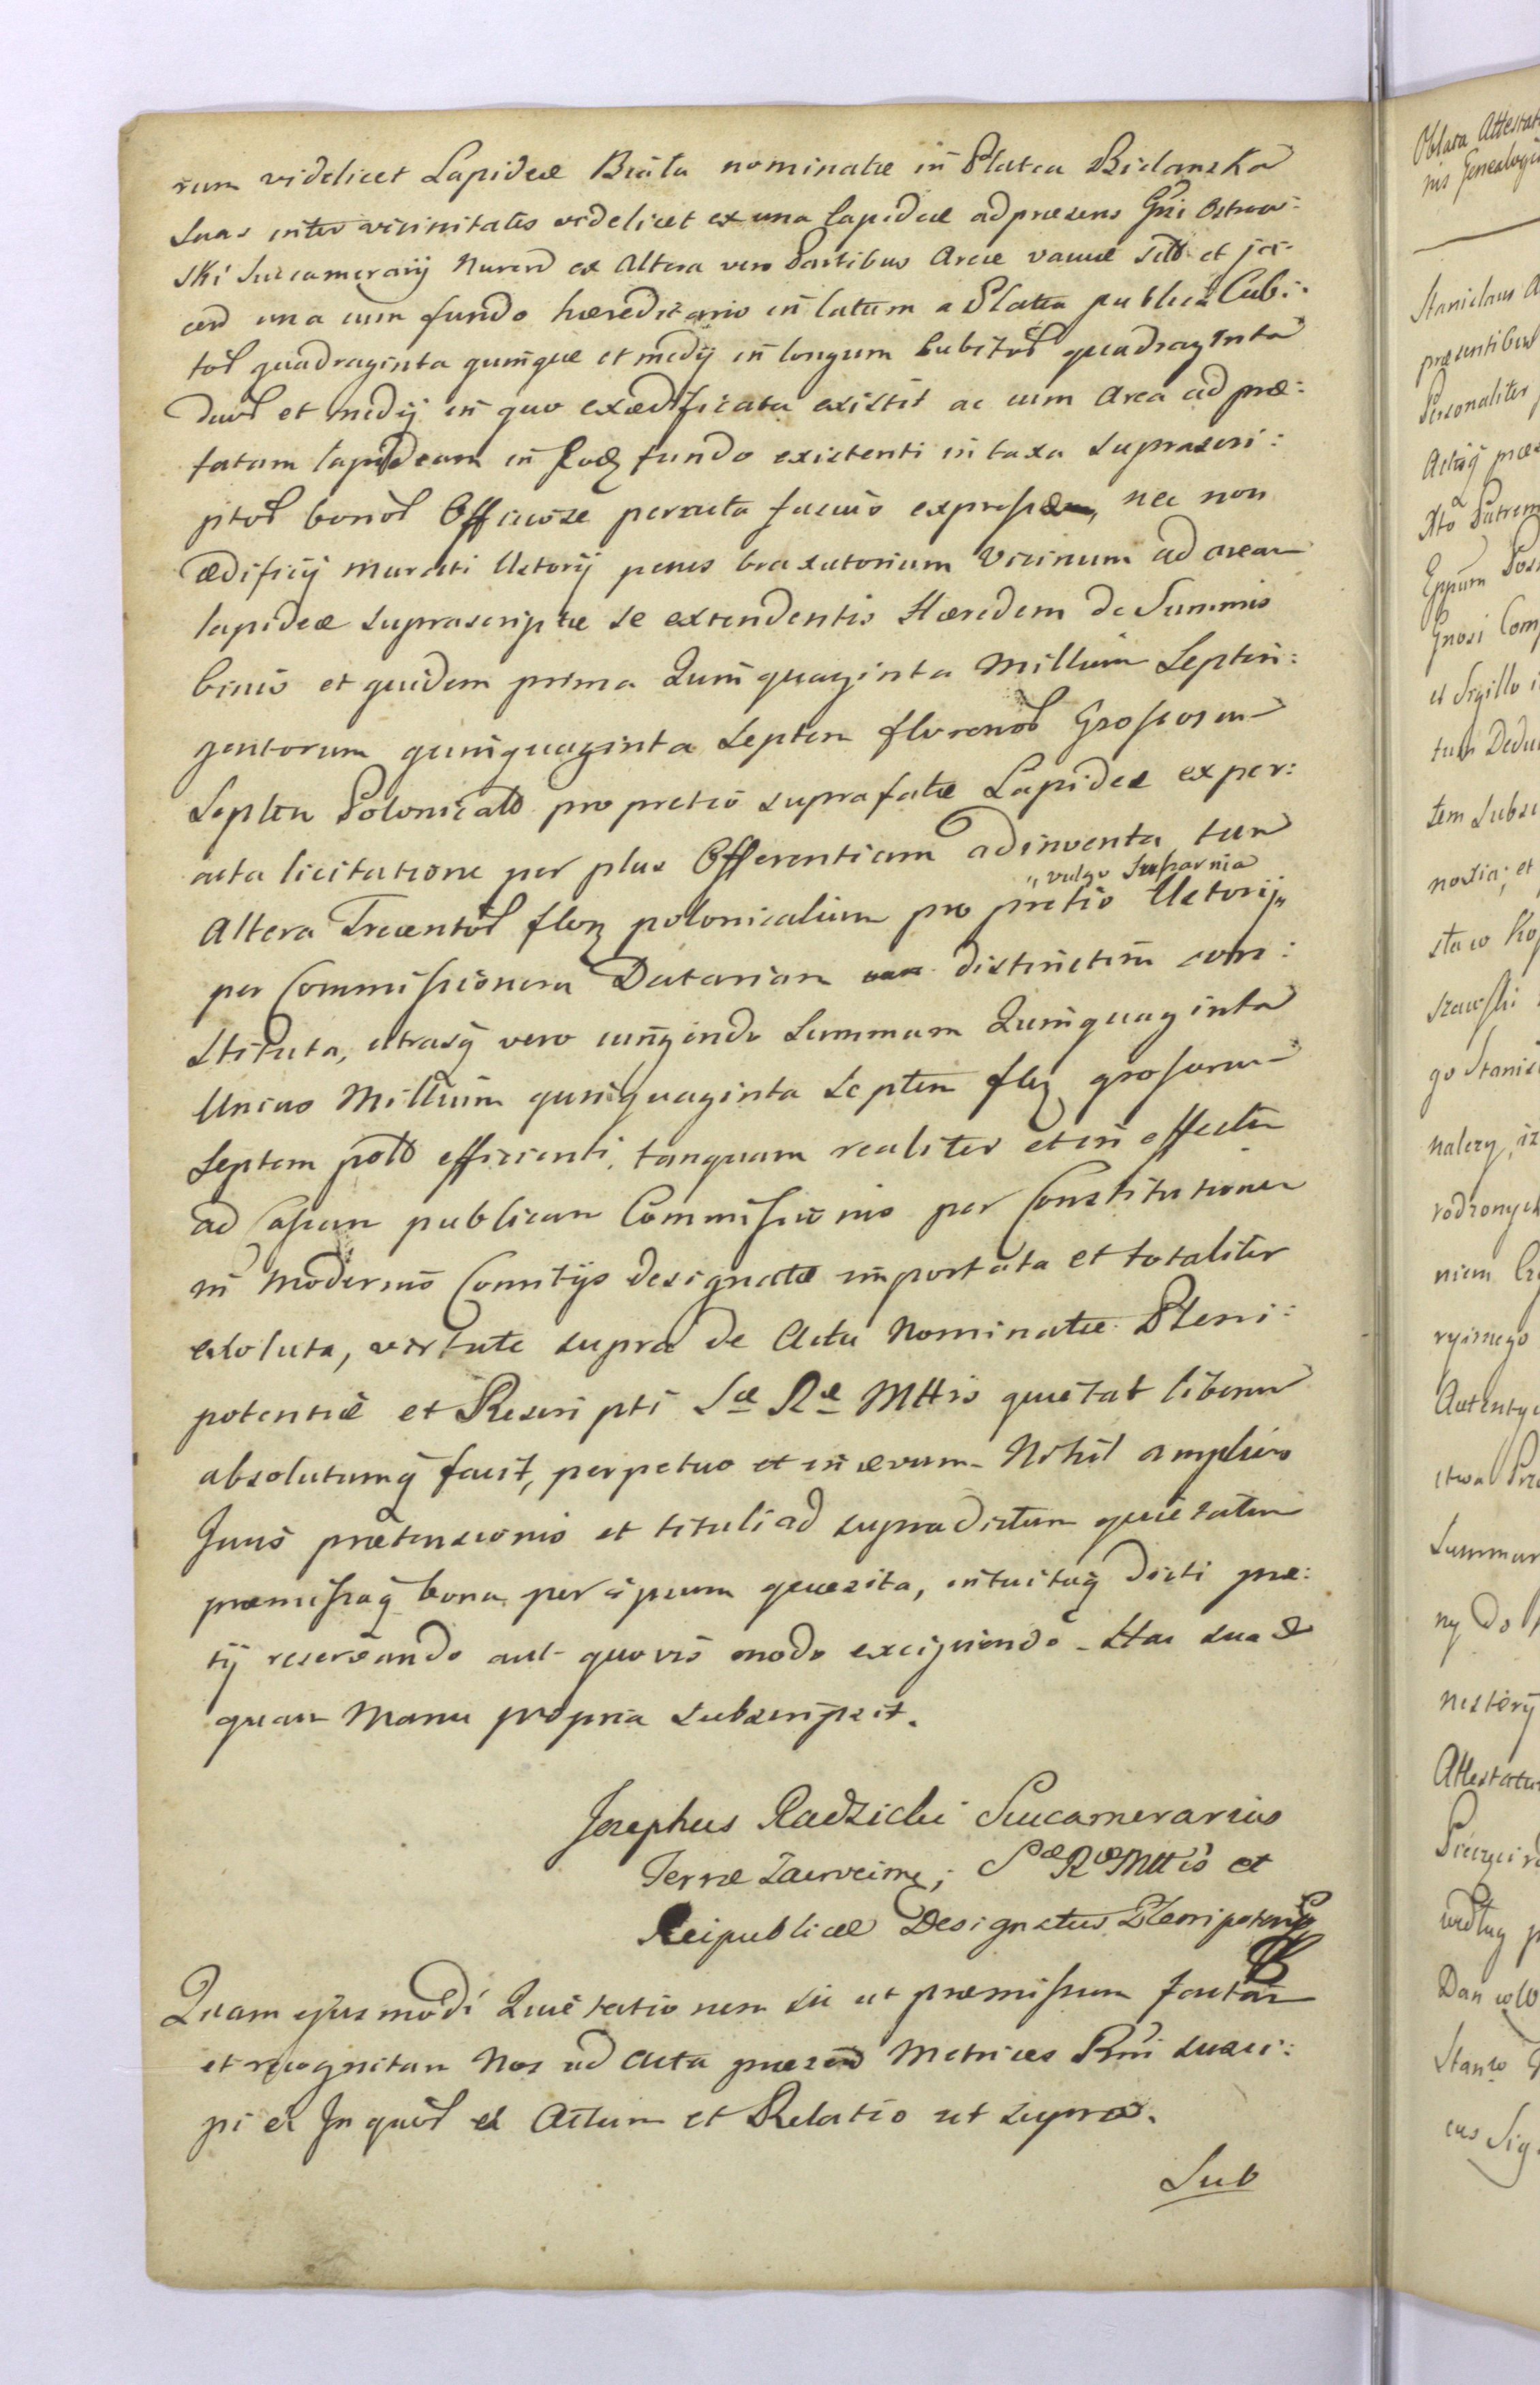 rum videlicet Lapideæ Biała nominatæ in Platea Bielanska
suas inter vicinitates videlicet ex una lapideæ ad præsens Gñi Ostrow:
ski Succamerarij Nuren ex altera vero Partibus Areæ vacuæ sitæ et ja:
cen una cum fundo hæreditario in latum a Platea publica Cubi:
to℟ quadraginta quinque et medij in longum Cubito℟ quadraginta
duo℟ et medij in quo exædificata existit ac cum Area ad præ:
fatam lapideam in fundo existenti in taxa suprascri:
pto℟ bono℟ Officiose peracta fusius expressæ, nec non
ædificij murati Ustorij penes braxatorium vicinum ad aream
lapideæ suprascriptæ se extendentis Hæredem de Summis
binis et quidem prima Quinquaginta Millium Septin:
gentorum quinquaginta septem floreno℟ Grossorum
Septem Polonical pro pretio suprafatæ Lapideæ ex per:
acta licitatione per plus Offerentiam adinventa tum
„vulgo Suszarnia
altera Trecento℟ flor polonicalium pro pretio Ustorij„
per Commissionem Datariam distinctim con:
stituta, utrasq̃ vero jungendo Summam Quinquaginta
Unius Millium quinquaginta septem flor grossorum
Septem pol efficienti, tanquam realiter et in effectu
ad Cassam publicam Commissionis per Constitutionem
in modernis Comitijs designatæ importata et totaliter
exoluta, virtute supra de Actu Nominatæ Pleni:
potentiæ et Rescripti Sæ Ræ Mttis quietat liberum
absolutumq̃ facit, perpetuo et in ævum. Nihil amplius
Juris prætensionis et tituli ad supradictum quietatum
præmissaq̃ bona per ipsum quæsita, intuituq̃ dicti præ:
tij reservando aut quovis modo excipiendo. Hac sua
quam Manu propria subscripsit.
Josephus Radzicki Succamerarius
Terræ Zacrocimen; Sæ Ræ Mttis et
Reipublicæ Designatus Plenipoten
Quam ejusmodi Quietationem sic ut præmissum factam
et recognitam Nos ad Acta præsen Metrices Rñi susce:
pi et In quo℟ et Actum et Relatio ut supra.
Sub
Oblata Attestat
nis Genealogi
Stanislaus A
præsentibus
Personaliter
Actisq̃ præs
Xto Patrem
Eppum Pos
Gnosi Com
et Sigillo i
tum Dedu
tem Subsc
noxia; et
sław Ko
szewski
go Stanis
należy, iż
rodzonych
niem
ryjnego
Autenty
stwa Prze
Summar
ny Do
nisterij
Attestatu
według p
Dan
Stanw
cus Sig